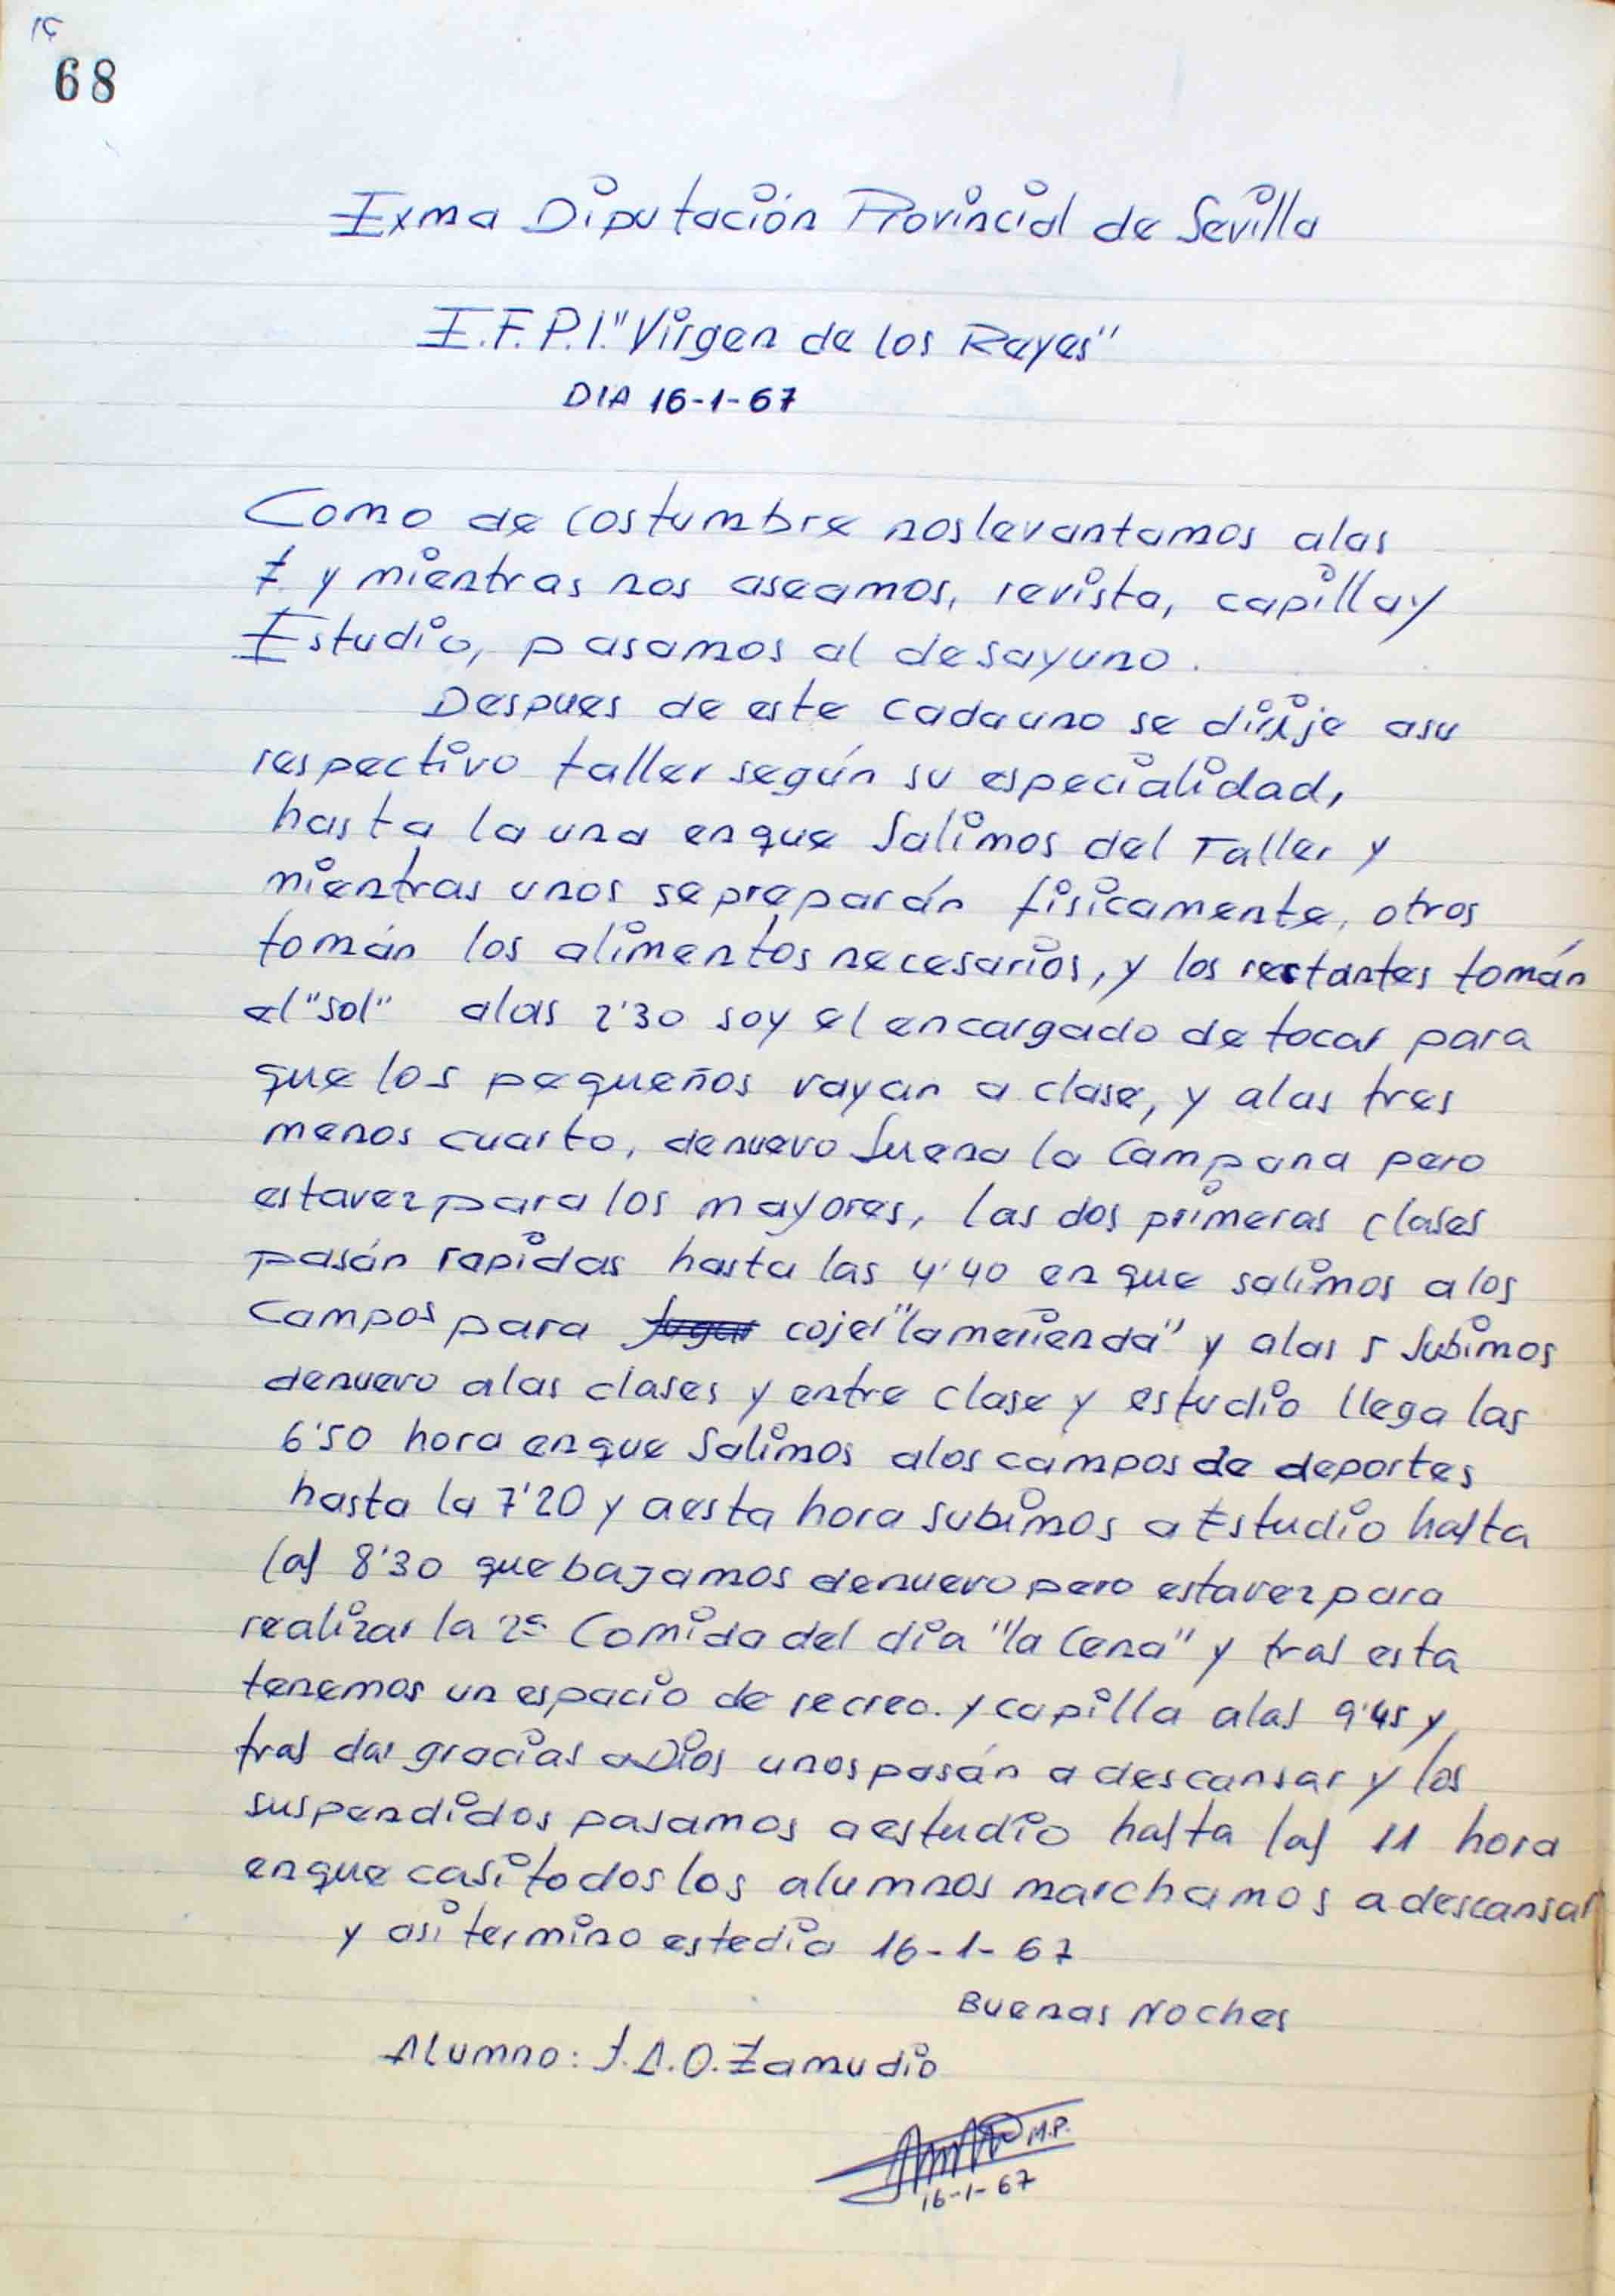 68
Exma Diputación Provincial de Sevilla
I.F.P.I. "Virgen de los Reyes"
DIA 16-1-67
Como de costumbre nos levantamos alas
7 y mientras nos aseamos, revista, capilla y
Estudio, pasamos al desayuno.
Despues de este cada uno se dirije asu
respectivo taller según su especialidad,
hasta la una en que Salimos del Taller y
mientras unos se preparán fisicamente, otros
tomán los alimentos necesarios, y los restantes tomán
el "sol" alas 2'30 soy el encargado de tocar para
que los pequeños vayan a clase, y alas tres
menos cuarto, denuevo Suena la Campana pero
estavez para los mayores, las dos primeras clases
pasán rapidas hasta las 4'40 en que salimos a los
Campos para Jugar cojer "la merienda" y alas 5 Subimos
denuevo alas clases y entre clase y estudio llega las
6'50 hora en que Salimos alos campos de deportes
hasta la 7'20 y aesta hora subimos a Estudio hasta
las 8'30 que bajamos denuevo pero estavez para
realizar la 2ª Comida del dia "la Cena" y tras esta
tenemos un espacio de recreo. y capilla alas 9'45 y
tras dar gracias a Dios unos pasán a descansar y los
suspendidos pasamos a estudio hasta las 11 hora
en que casi todos los alumnos marchamos a descansar
y asi termino este dia 16-1-67
Buenas Noches
Alumno: J.A.O. Zamudio
M.P.
16-1-67